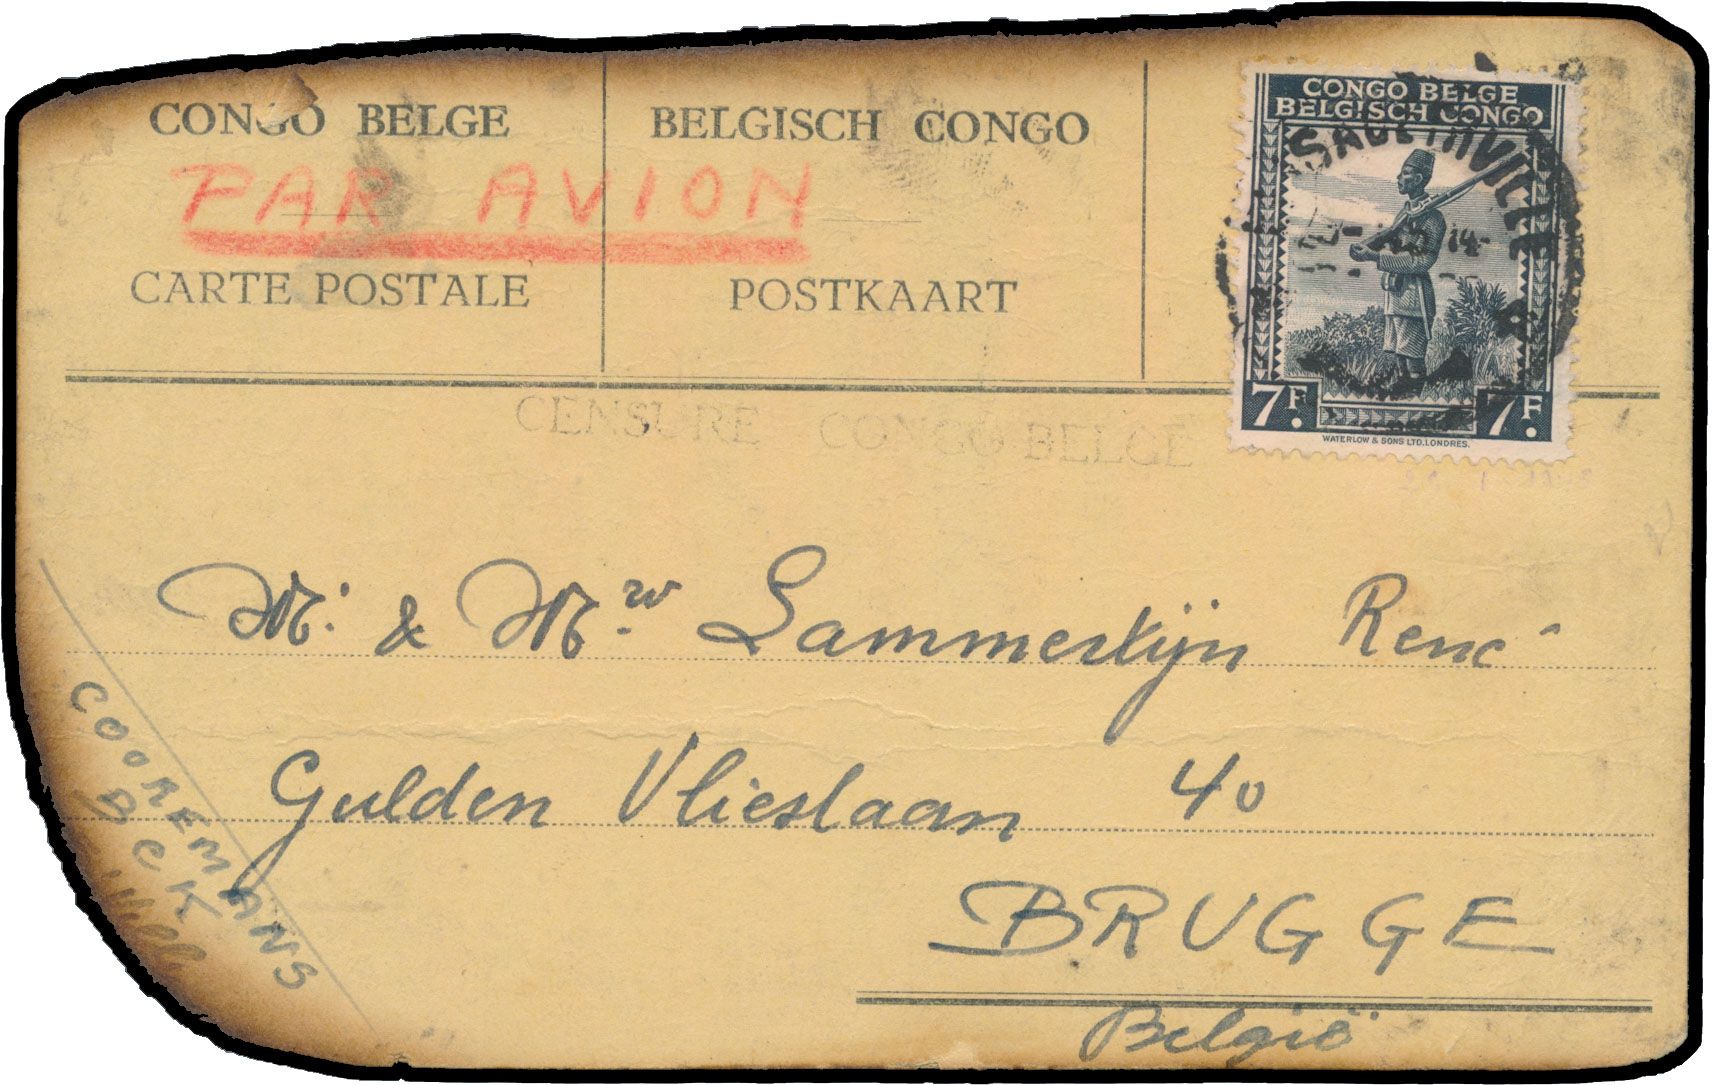 CONGO BELGE
BELGISCH CONGO
PAR AVION
CARTE POSTALE
POSTKAART
CONGO BELGE
BELGISCH CONGO
7F.
7F.
WATERLOW & SONS LTD. LONDRES.
CENSURE CONGO BELGE
Mr. & Mw. Lammertijn René
Gulden Vlieslaan 40
BRUGGE
België
COOREMANS